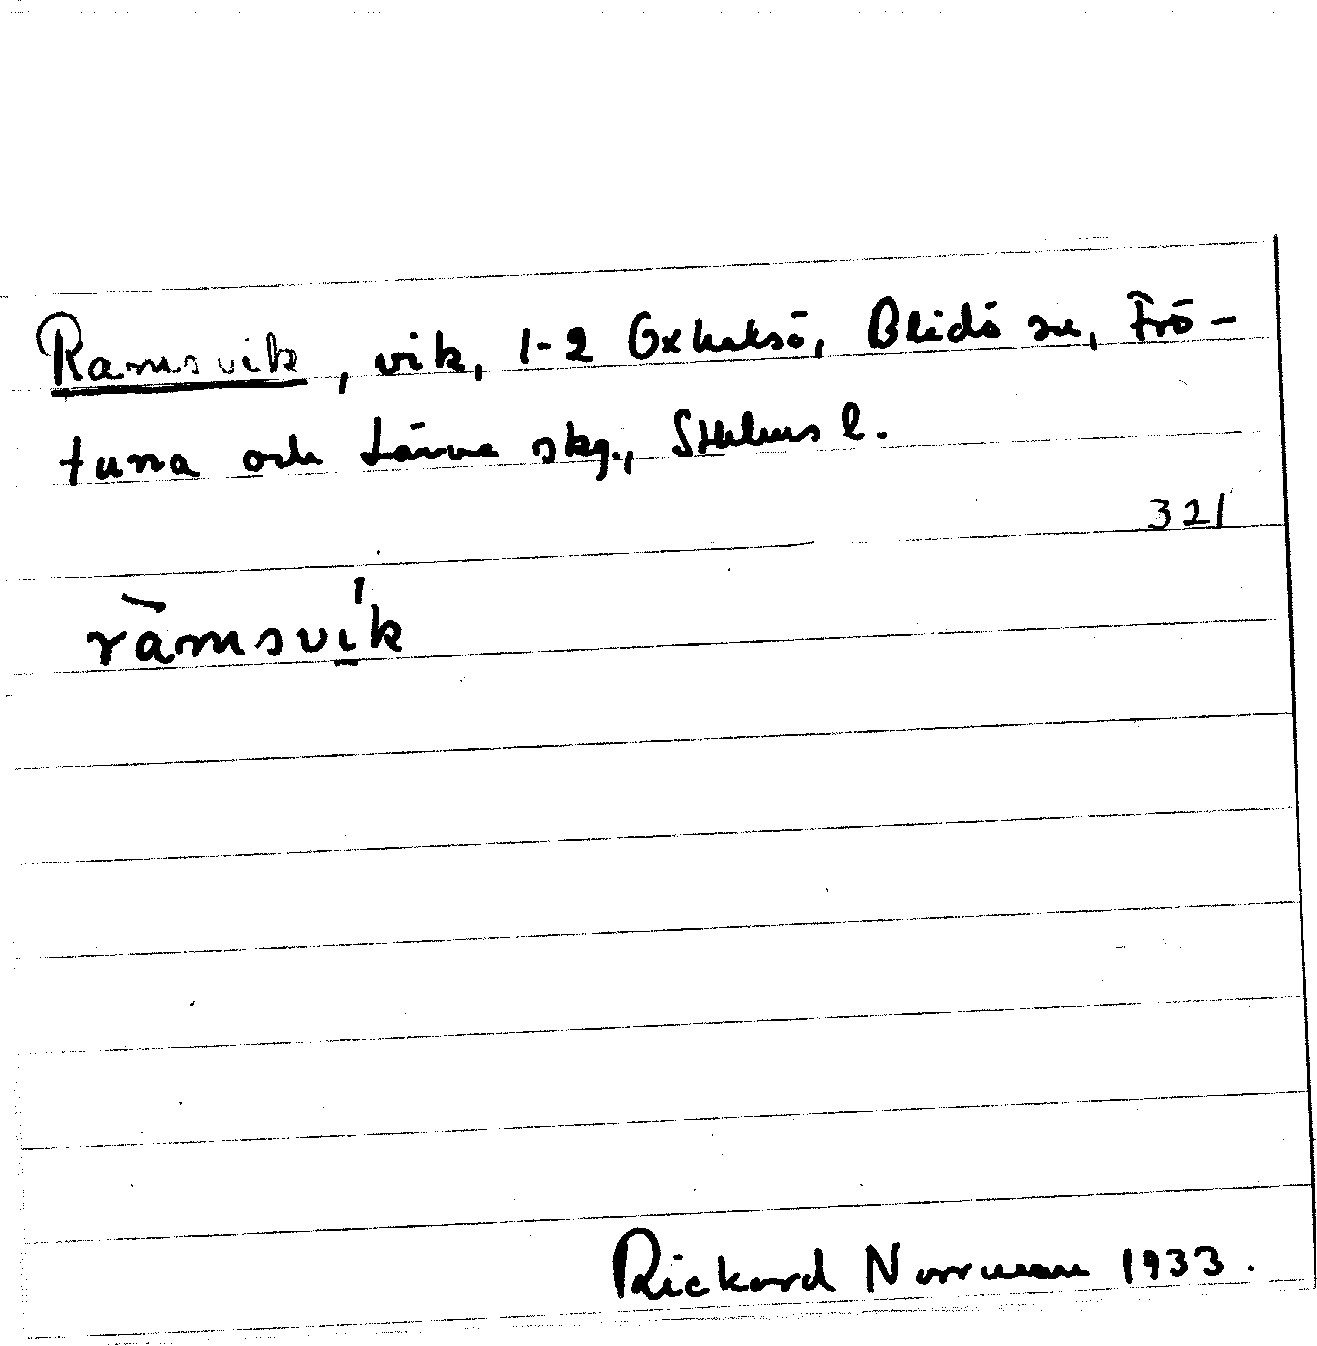 Ramsvik, vik, 1-2 Oxhalsö, Blidö sn, Frö-
tuna och Länna skg., Sthlms l.
321
ràmsvík
Rickard Norrman 1933.